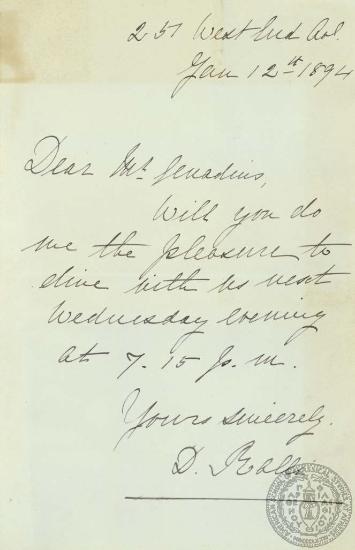 251 West End Av.
Jan 12th 1894
Dear Mr. Genadius,
Will you do
me the pleasure to
dine with us next
Wednesday evening
at 7.15 p.m.
Yours sincerely.
D. Ralli